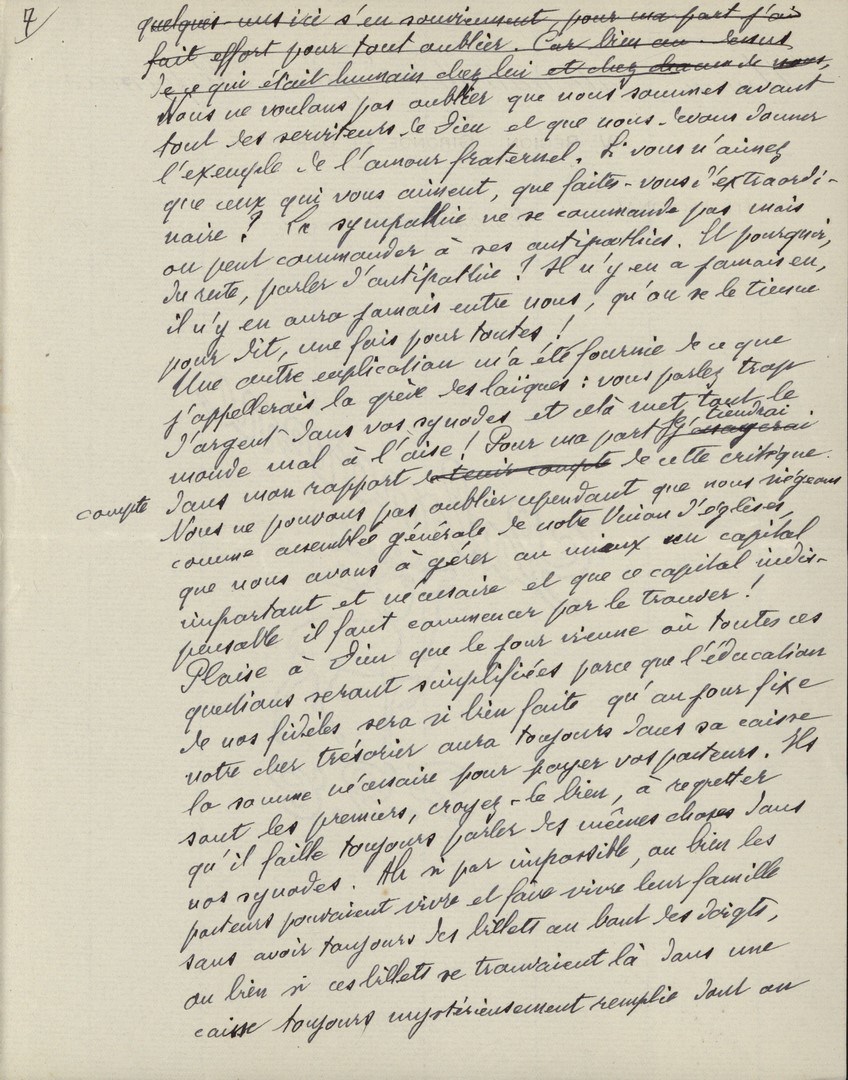 7
quelques-uns ici s'en souviennent, pour ma part j'ai
fait effort pour tout oublier. Car bien au-dessus
de ce qui était humain chez lui et chez chacun de nous,
Nous ne voulons pas oublier que nous sommes avant
tout des serviteurs de Dieu et que nous devons donner
l'exemple de l'amour fraternel. Si vous n'aimez
que ceux qui vous aiment, que faites-vous d'extraordi-
naire ? La sympathie ne se commande pas mais
on peut commander à ses antipathies. Et pourquoi,
du reste, parler d'antipathie ? Il n'y en a jamais eu,
il n'y en aura jamais entre nous, qu'on se le tienne
pour dit, une fois pour toutes !
Une autre explication m'a été fournie de ce que
j'appellerais la grève des laïques : vous parlez trop
d'argent dans vos synodes et celà met tout le
monde mal à l'aise ! Pour ma part je tiendrai
j'essayerai
compte dans mon rapport de tenir compte de cette critique.
Nous ne pouvons pas oublier cependant que nous siégeons
comme assemblée générale de notre Union d'églises,
que nous avons à gérer au mieux un capital
important et nécessaire et que ce capital indis-
pensable il faut commencer par le trouver !
Plaise à Dieu que le jour vienne où toutes ces
questions seront simplifiées parce que l'éducation
de nos fidèles sera si bien faite qu'au jour fixe
notre cher trésorier aura toujours dans sa caisse
la somme nécessaire pour payer vos pasteurs. Ils
sont les premiers, croyez-le bien, à regretter
qu'il faille toujours parler des mêmes choses dans
nos synodes. Ah si par impossible, ou bien les
pasteurs pouvaient vivre et faire vivre leur famille
sans avoir toujours des billets au bout des doigts,
ou bien si ces billets se trouvaient là dans une
caisse toujours mystérieusement remplie dont on